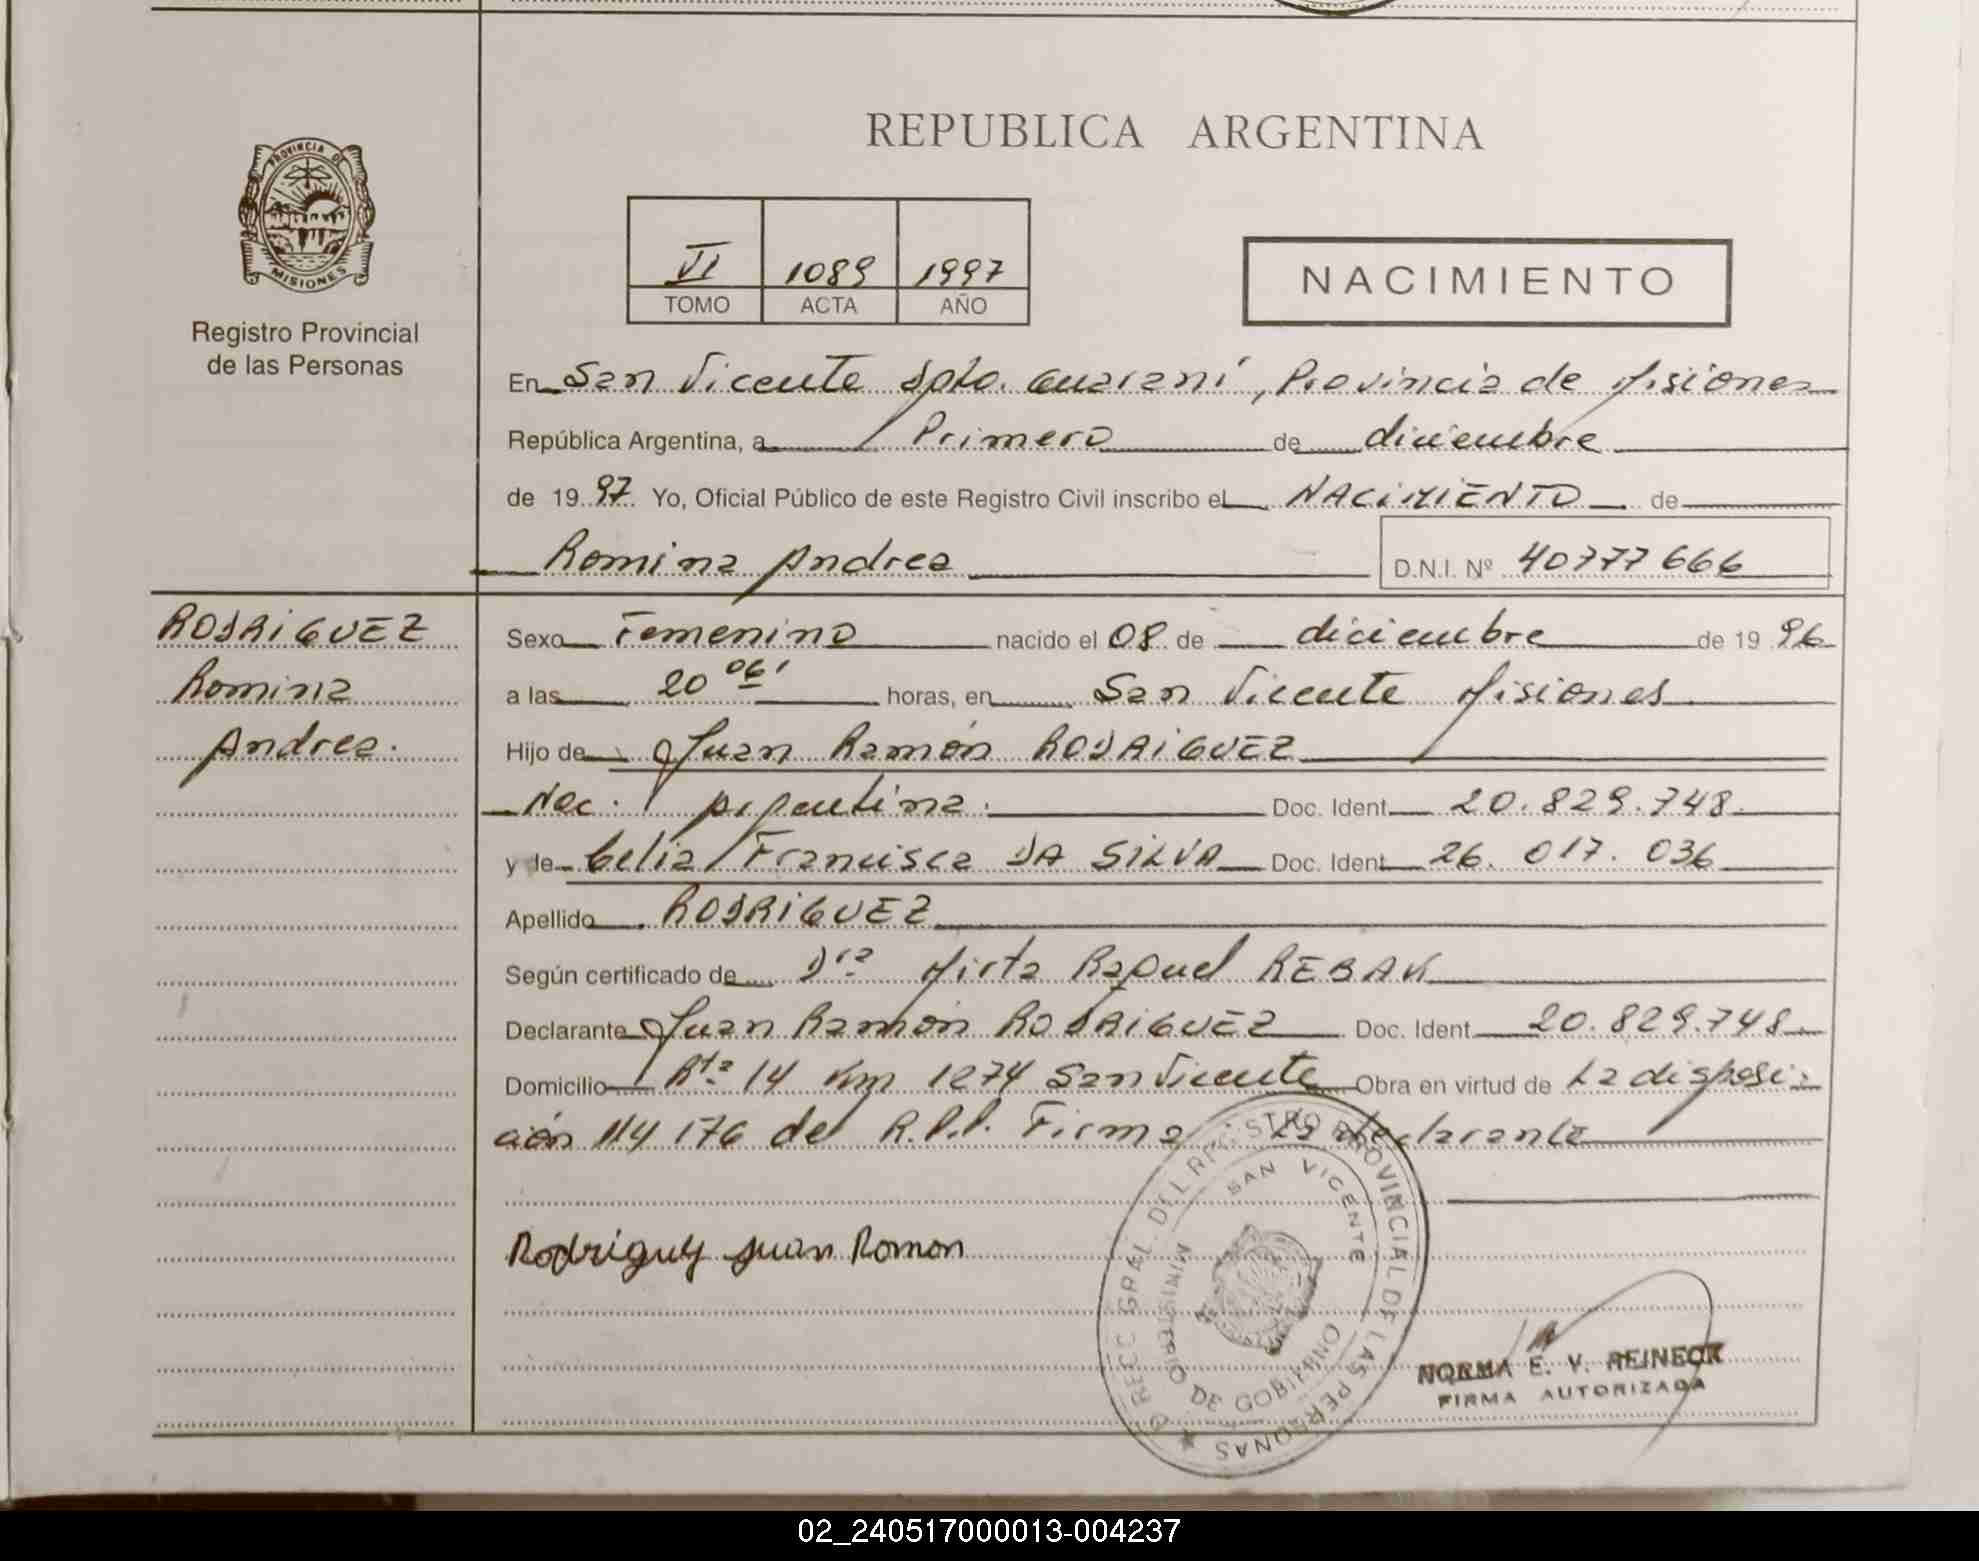 REPUBLICA ARGENTINA
PROVINCIA DE MISIONES
Registro Provincial
de las Personas
VI 1089 1997
TOMO ACTA AÑO
NACIMIENTO
En San Vicente Dpto. Guaraní, Provincia de Misiones
República Argentina, a Primero de diciembre
de 1997. Yo, Oficial Público de este Registro Civil inscribo el NACIMIENTO de
Romina Andrea D.N.I. Nº 40777666
RODRIGUEZ
Romina
Andrea.
Sexo Femenino nacido el 08 de diciembre de 1996
a las 20 06' horas, en San Vicente Misiones
Hijo de Juan Ramón RODRIGUEZ
Nac: Argentina. Doc. Ident. 20.829.748.
y de Celia Francisca DA SILVA Doc. Ident. 26.017.036
Apellido RODRIGUEZ
Según certificado de Dra Mirta Raquel REBAK
Declarante Juan Ramón RODRIGUEZ Doc. Ident. 20.829.748.
Domicilio Rta 14 Km 1274 San Vicente Obra en virtud de La disposi-
ción 114/76 del R.P.P. Firma declarante
Rodriguez Juan Ramon
DIRECC. GRAL. DEL REGISTRO PROVINCIAL DE LAS PERSONAS
SAN VICENTE
MINISTERIO DE GOBIERNO
NORMA E. V. REINECK
FIRMA AUTORIZADA
02_240517000013-004237